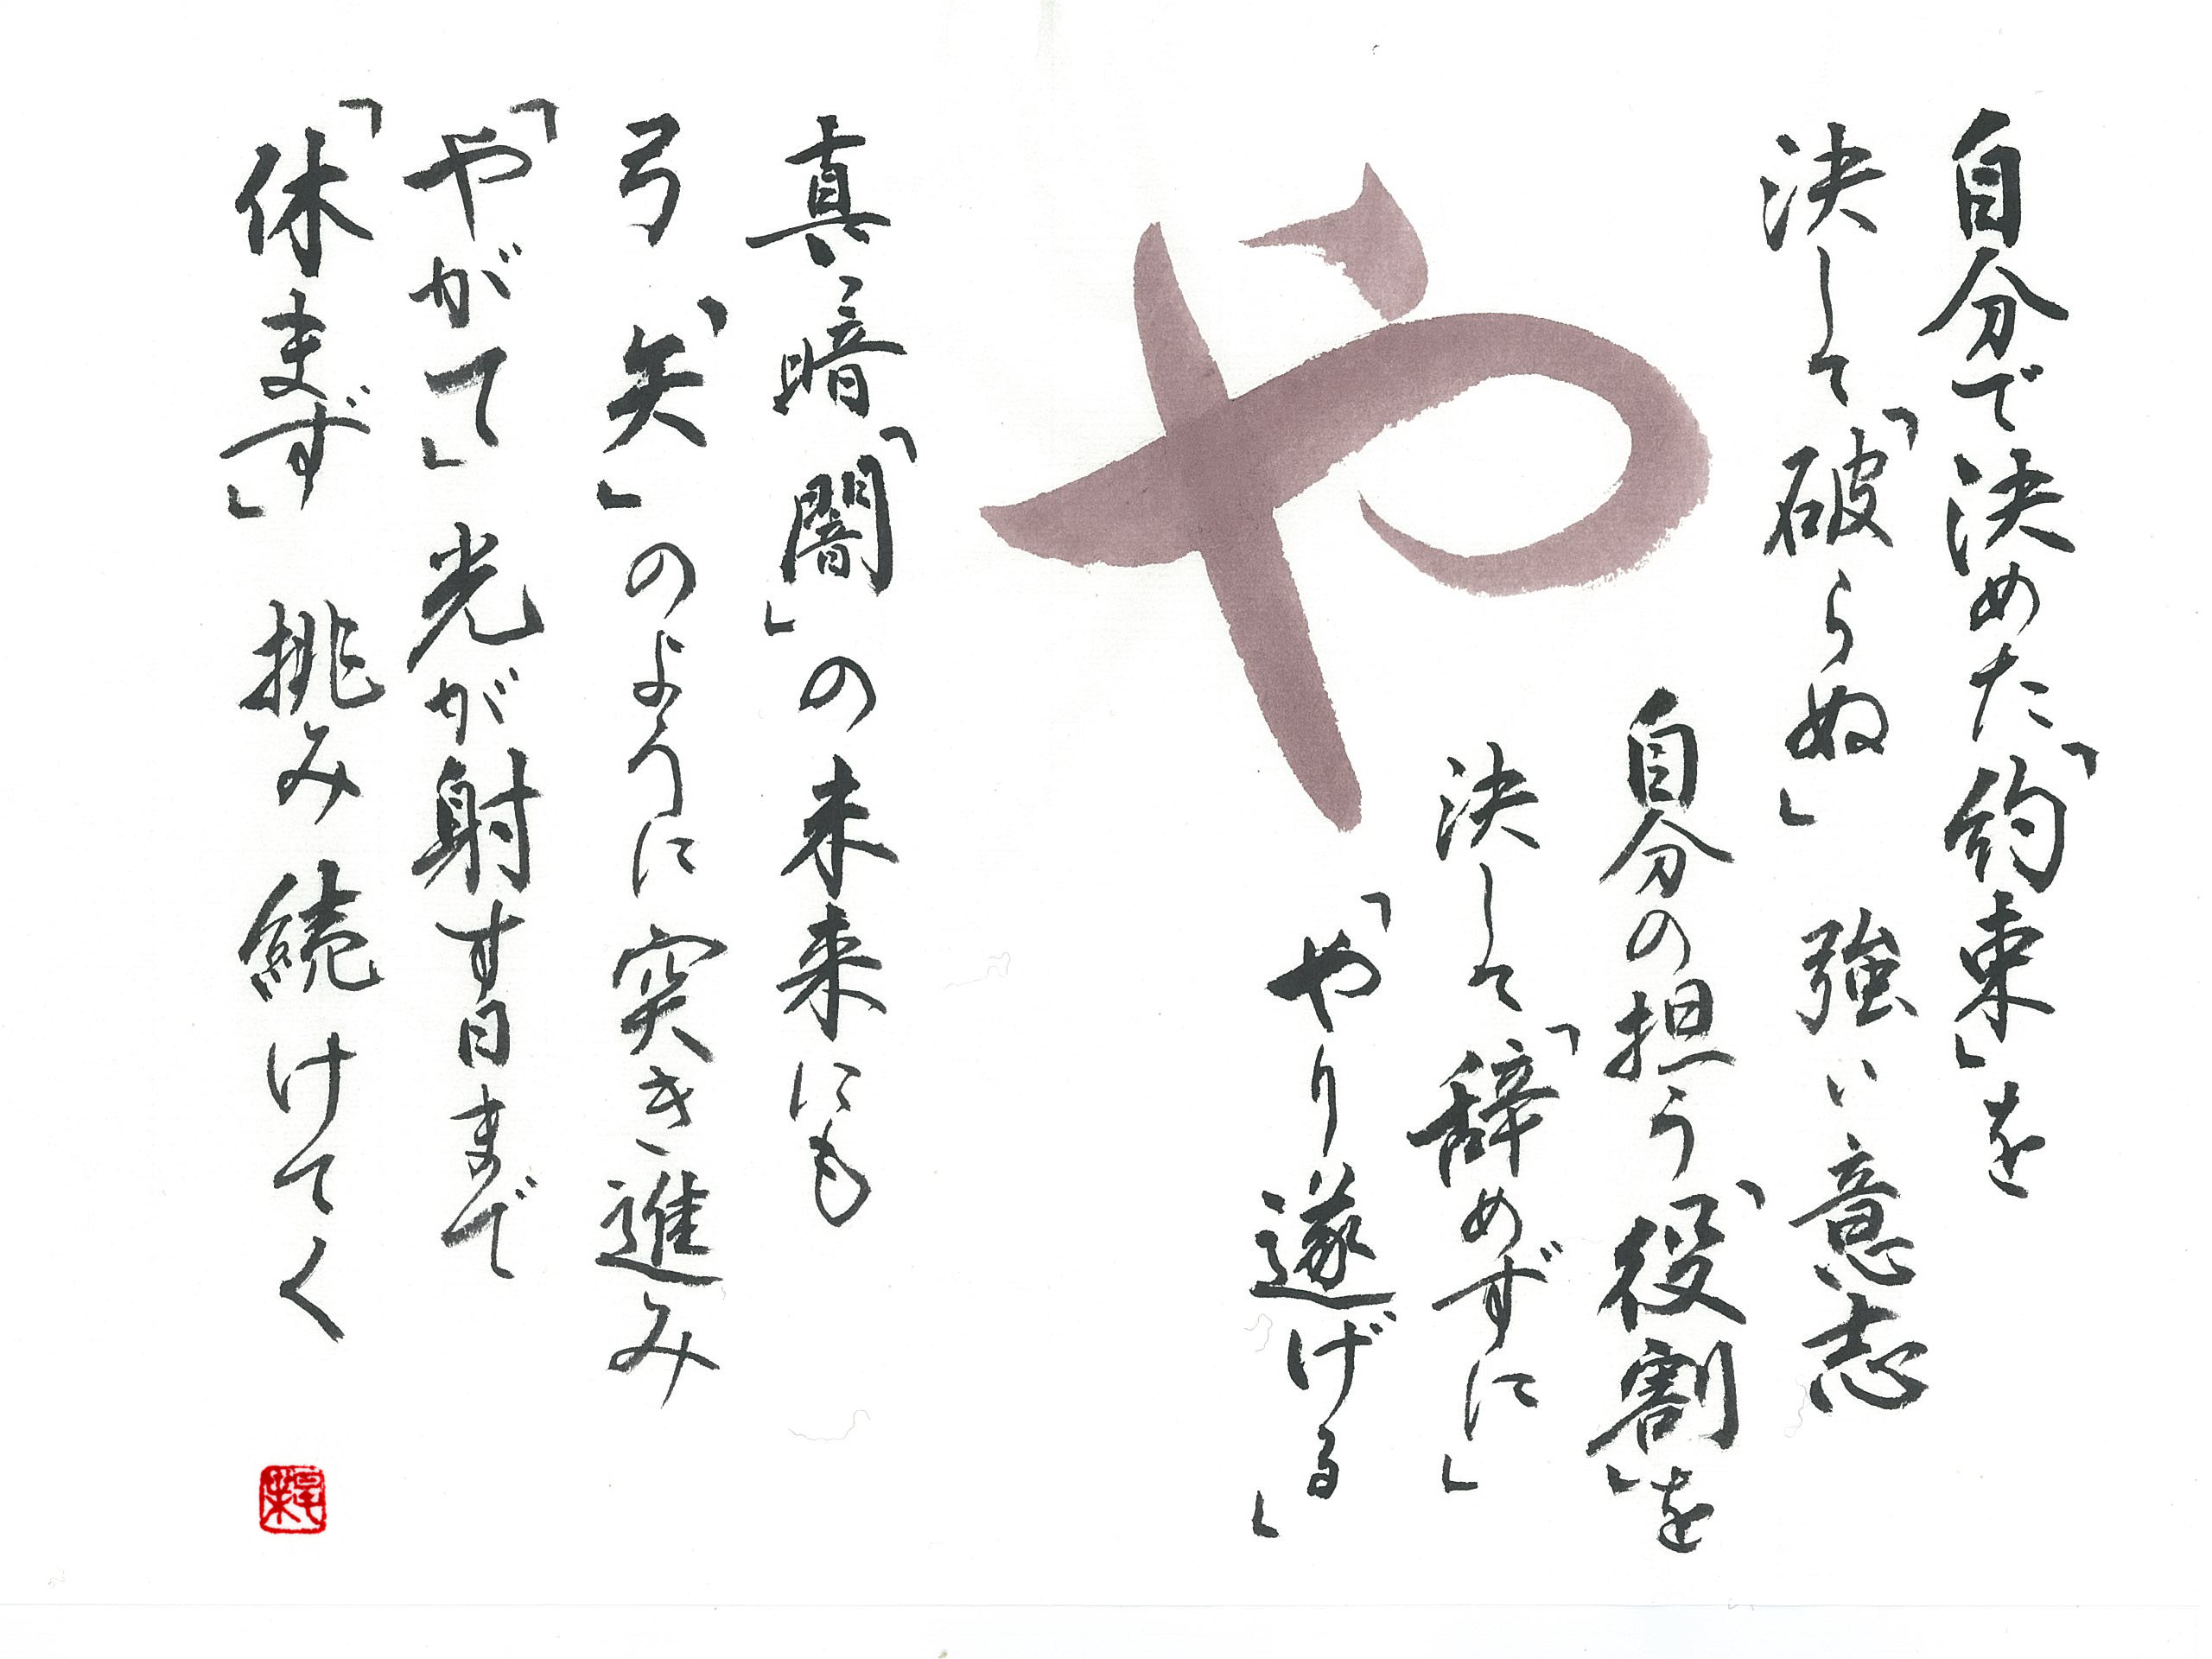 自分で決めた「約束」を
決して「破らぬ」 強い意志
自分の担う「役割」を
決して「辞めずに」
「やり遂げる」
や
真っ暗「闇」の未来にも
弓「矢」のように突き進み
「やがて」光が射す日まで
「休まず」 挑み続けてく